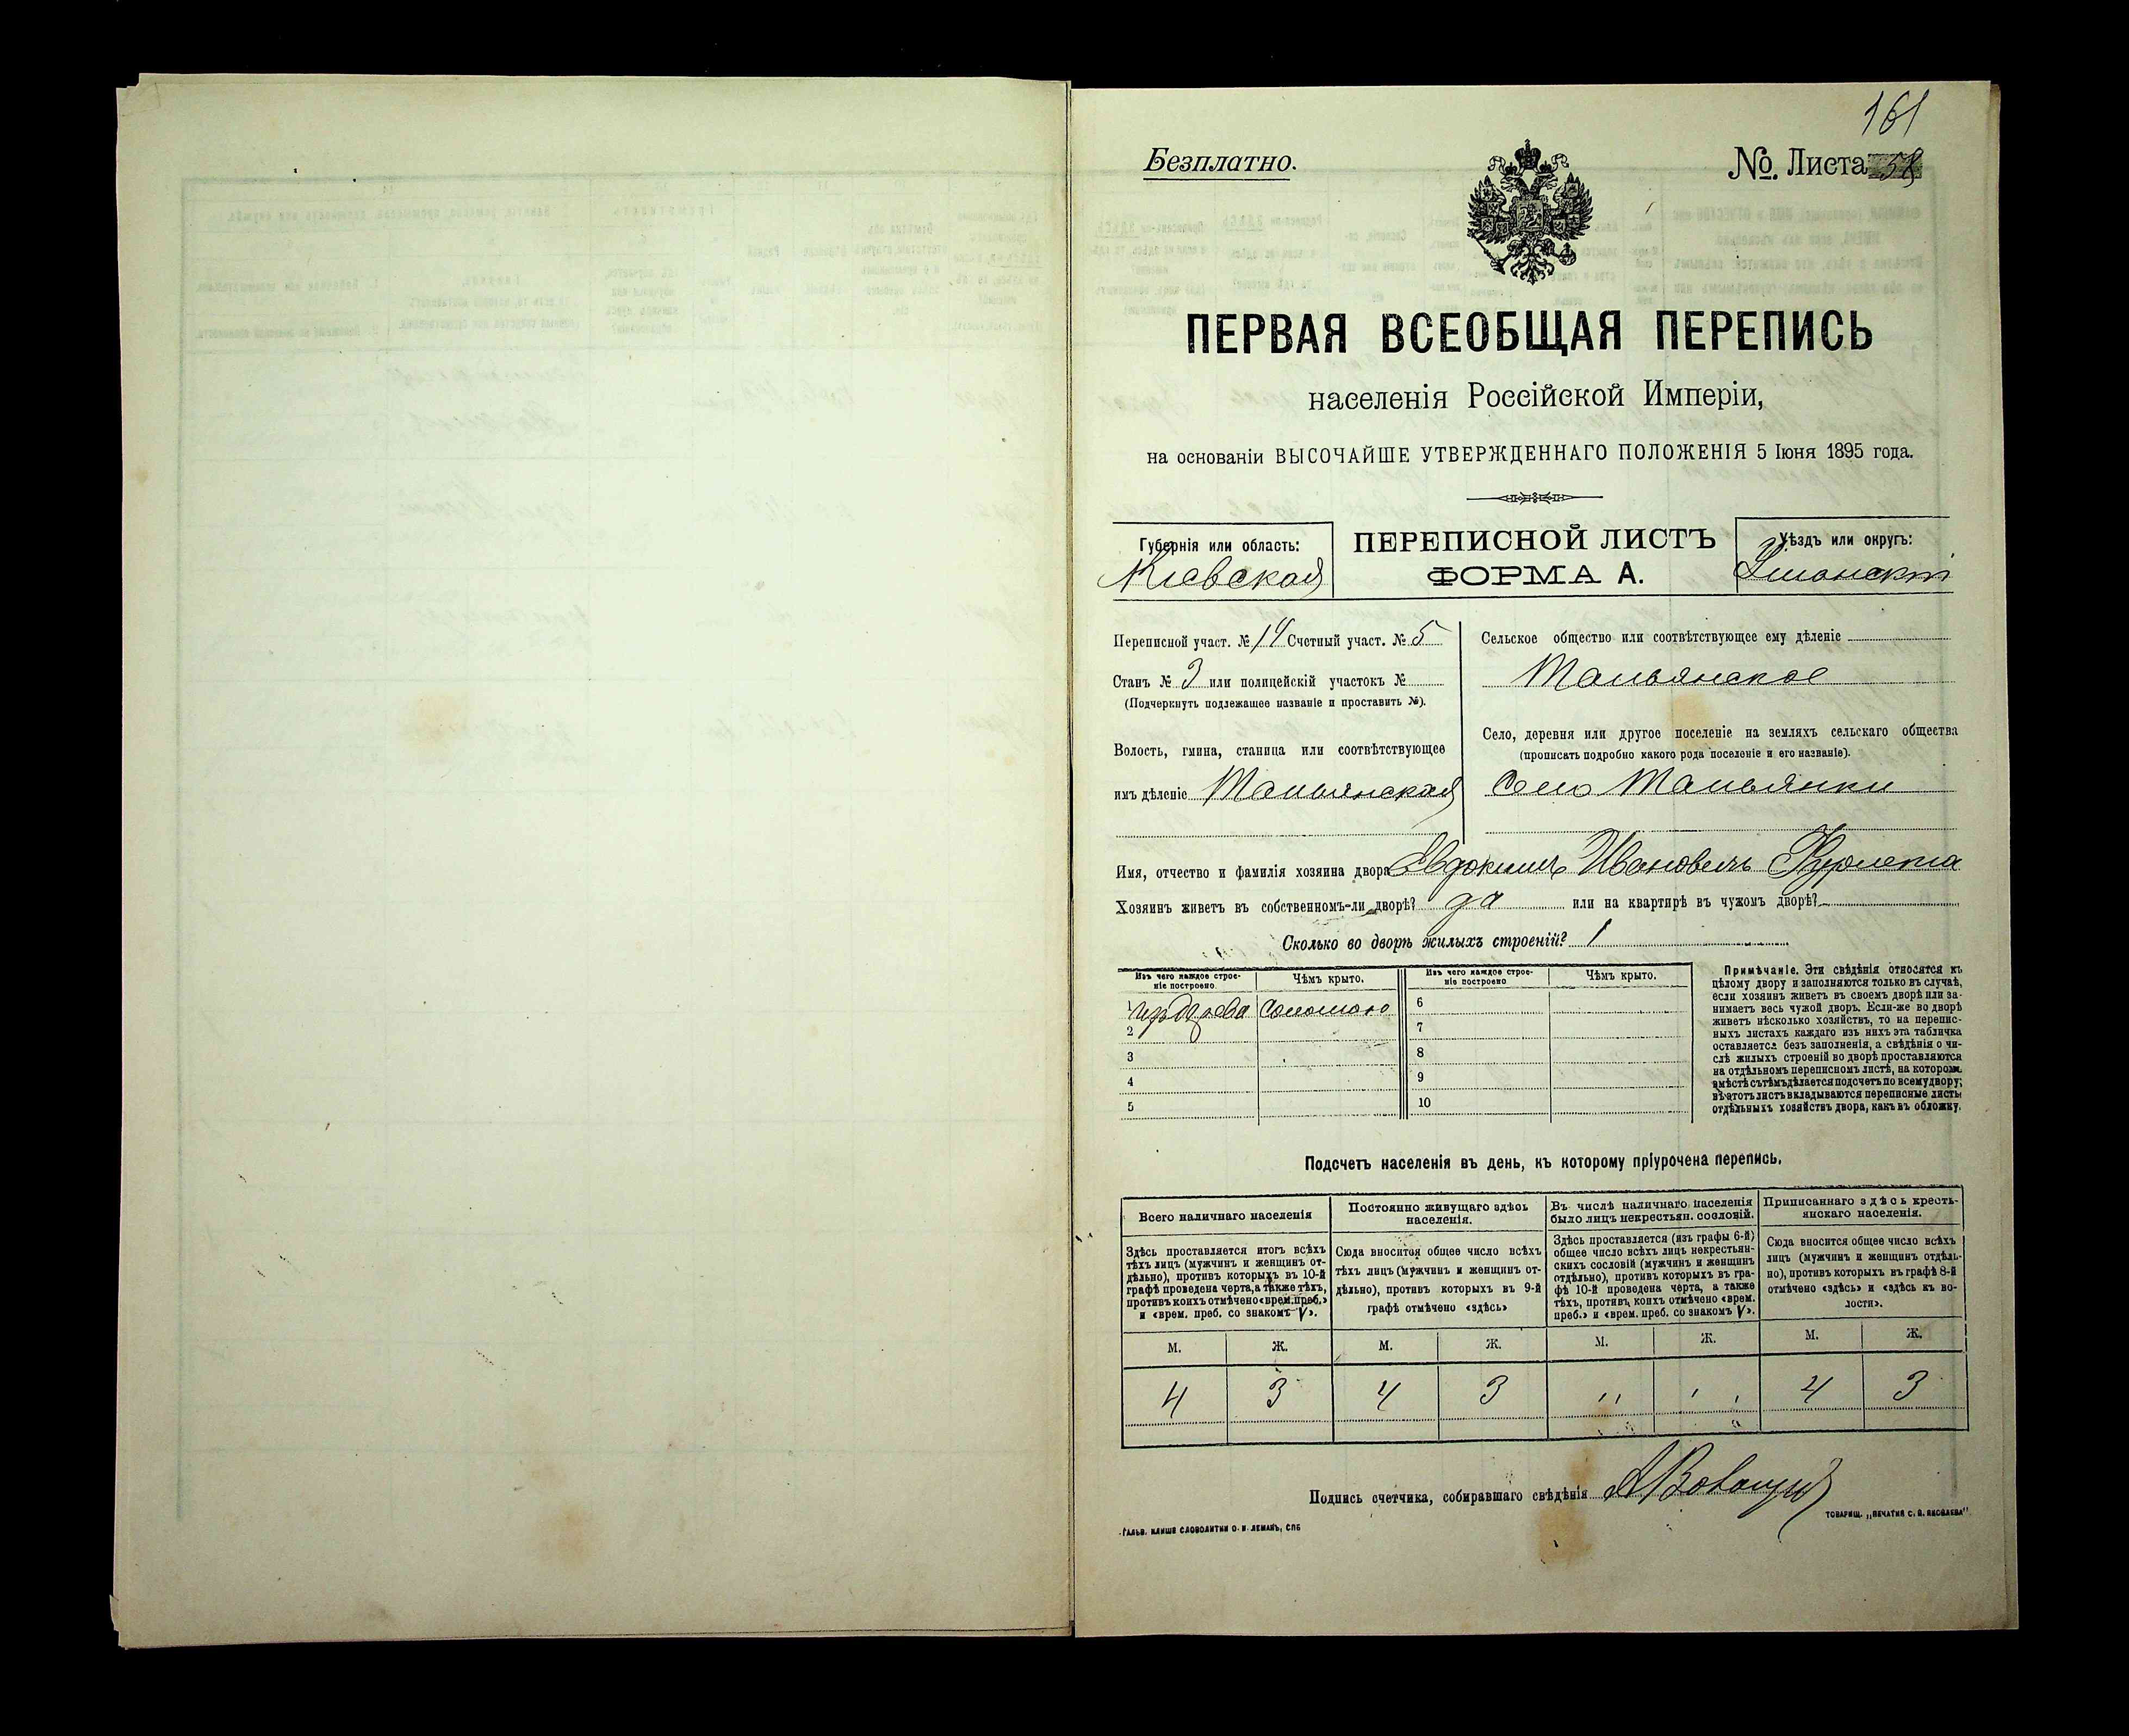 161
Безплатно.
№. Листа 58
ПЕРВАЯ ВСЕОБЩАЯ ПЕРЕПИСЬ
населенія Россійской Имперіи,
на основаніи ВЫСОЧАЙШЕ УТВЕРЖДЕННАГО ПОЛОЖЕНІЯ 5 Іюня 1895 года.
Губернія или область:
Кіевская
ПЕРЕПИСНОЙ ЛИСТЪ
ФОРМА А.
Уѣздъ или округъ:
Уманскій
Переписной участ. № 14 Счетный участ. № 5
Станъ № 3 или полицейскій участокъ №
(Подчеркнуть подлежащее названіе и проставить №).
Волость, гмина, станица или соотвѣтствующее
имъ дѣленіе Тальянская
Сельское общество или соотвѣтствующее ему дѣленіе
Тальянское
Село, деревня или другое поселеніе на земляхъ сельскаго общества
(прописать подробно какого рода поселеніе и его названіе).
Село Тальянки
Имя, отчество и фамилія хозяина двора Евдокимъ Ивановичъ
Хозяинъ живетъ въ собственномъ-ли дворѣ? да или на квартирѣ въ чужомъ дворѣ?
Сколько во дворѣ жилыхъ строеній? 1
Изъ чего каждое строе-
ніе построено.
Чѣмъ крыто.
Изъ чего каждое строе-
ніе построено
Чѣмъ крыто.
1 изъ дерева соломою
2
3
4
5
6
7
8
9
10
Примѣчаніе. Эти свѣдѣнія относятся къ
цѣлому двору и заполняются только въ случаѣ,
если хозяинъ живетъ въ своемъ дворѣ или за-
нимаетъ весь чужой дворъ. Если-же во дворѣ
живетъ нѣсколько хозяйствъ, то на перепис-
ныхъ листахъ каждаго изъ нихъ эта табличка
оставляется безъ заполненія, а свѣдѣнія о чи-
слѣ жилыхъ строеній во дворѣ проставляются
на отдѣльномъ переписномъ листѣ, на которомъ
вмѣстѣ съ тѣмъ дѣлается подсчетъ по всему двору;
въ этотъ листъ вкладываются переписные листы
отдѣльныхъ хозяйствъ двора, какъ въ обложку.
Подсчетъ населенія въ день, къ которому пріурочена перепись.
Всего наличнаго населенія
Постоянно живущаго здѣсь
населенія.
Въ числѣ наличнаго населенія
было лицъ некрестьян. сословій.
Приписаннаго здѣсь кресть-
янскаго населенія.
Здѣсь проставляется итогъ всѣхъ
тѣхъ лицъ (мужчинъ и женщинъ от-
дѣльно), противъ которыхъ въ 10-й
графѣ проведена черта, а также тѣхъ,
противъ коихъ отмѣчено «врем. преб.»
и «врем. преб. со знакомъ V».
Сюда вносится общее число всѣхъ
тѣхъ лицъ (мужчинъ и женщинъ от-
дѣльно), противъ которыхъ въ 9-й
графѣ отмѣчено «здѣсь»
Здѣсь проставляется (изъ графы 6-й)
общее число всѣхъ лицъ некрестьян-
скихъ сословій (мужчинъ и женщинъ
отдѣльно), противъ которыхъ въ гра-
фѣ 10-й проведена черта, а также
тѣхъ, противъ коихъ отмѣчено «врем.
преб.» и «врем. преб. со знакомъ V».
Сюда вносится общее число всѣхъ
лицъ (мужчинъ и женщинъ отдѣль-
но), противъ которыхъ въ графѣ 8-й
отмѣчено «здѣсь» и «здѣсь къ во-
лости».
М. Ж. М. Ж. М. Ж. М. Ж.
4 3 4 3 " " 4 3
Подпись счетчика, собиравшаго свѣдѣнія
ГАЛЬВ. КЛИШЕ СЛОВОЛИТНИ О. И. ЛЕМАНЪ, СПБ
ТОВАРИЩ. „ПЕЧАТНЯ С. П. ЯКОВЛЕВА"